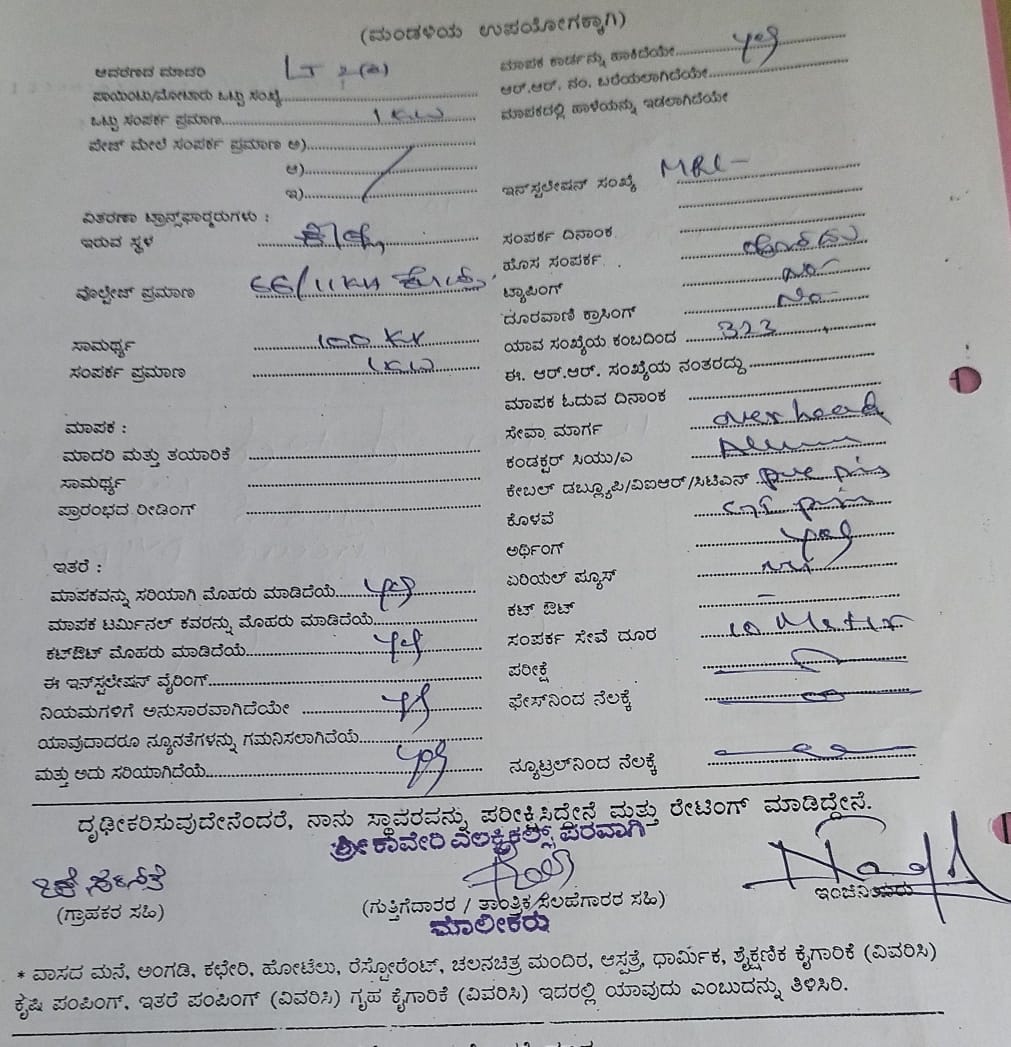 (ಮಂಡಳಿಯ ಉಪಯೋಗಕ್ಕಾಗಿ)
ಆವರಣದ ಮಾದರಿ LT 2(a)
ಪಾಯಿಂಟು/ಮೋಟಾರು ಒಟ್ಟು ಸಂಖ್ಯೆ
ಒಟ್ಟು ಸಂಪರ್ಕ ಪ್ರಮಾಣ 1 KW
ಪೇಜ್ ಮೇಲೆ ಸಂಪರ್ಕ ಪ್ರಮಾಣ ಅ)
ಆ)
ಇ)
ವಿತರಣಾ ಟ್ರಾನ್ಸ್‌ಫಾರ್ಮರುಗಳು :
ಇರುವ ಸ್ಥಳ
ವೊಲ್ಟೇಜ್ ಪ್ರಮಾಣ 66/11KV
ಸಾಮರ್ಥ್ಯ 100 KV
ಸಂಪರ್ಕ ಪ್ರಮಾಣ 1KW
ಮಾಪಕ :
ಮಾದರಿ ಮತ್ತು ತಯಾರಿಕೆ
ಸಾಮರ್ಥ್ಯ
ಪ್ರಾರಂಭದ ರೀಡಿಂಗ್
ಇತರೆ :
ಮಾಪಕವನ್ನು ಸರಿಯಾಗಿ ಮೊಹರು ಮಾಡಿದೆಯೆ yes
ಮಾಪಕ ಟರ್ಮಿನಲ್ ಕವರನ್ನು ಮೊಹರು ಮಾಡಿದೆಯೆ
ಕಟ್‌ಔಟ್ ಮೊಹರು ಮಾಡಿದೆಯೆ yes
ಈ ಇನ್‌ಸ್ಟಲೇಷನ್ ವೈರಿಂಗ್
ನಿಯಮಗಳಿಗೆ ಅನುಸಾರವಾಗಿದೆಯೇ yes
ಯಾವುದಾದರೂ ನ್ಯೂನತೆಗಳನ್ನು ಗಮನಿಸಲಾಗಿದೆಯೆ
ಮತ್ತು ಅದು ಸರಿಯಾಗಿದೆಯೆ yes
ಮಾಪಕ ಕಾರ್ಡನ್ನು ಹಾಕಿದೆಯೇ yes
ಆರ್.ಆರ್. ನಂ. ಬರೆಯಲಾಗಿದೆಯೇ
ಮಾಪಕದಲ್ಲಿ ಹಾಳೆಯನ್ನು ಇಡಲಾಗಿದೆಯೇ
ಇನ್‌ಸ್ಟಲೇಷನ್ ಸಂಖ್ಯೆ MRL-
ಸಂಪರ್ಕ ದಿನಾಂಕ
ಹೊಸ ಸಂಪರ್ಕ
ಟ್ಯಾಪಿಂಗ್ No
ದೂರವಾಣಿ ಕ್ರಾಸಿಂಗ್ No
ಯಾವ ಸಂಖ್ಯೆಯ ಕಂಬದಿಂದ 323
ಈ. ಆರ್.ಆರ್. ಸಂಖ್ಯೆಯ ನಂತರದ್ದು
ಮಾಪಕ ಓದುವ ದಿನಾಂಕ
ಸೇವಾ ಮಾರ್ಗ over head
ಕಂಡಕ್ಟರ್ ಸಿಯು/ಎ
ಕೇಬಲ್ ಡಬ್ಲ್ಯೂಪಿ/ವಿಐಆರ್/ಸಿಟಿಎಸ್
ಕೊಳವೆ
ಅರ್ಥಿಂಗ್ yes
ಏರಿಯಲ್ ಫ್ಯೂಸ್
ಕಟ್ ಔಟ್
ಸಂಪರ್ಕ ಸೇವೆ ದೂರ 10 Meter
ಪರೀಕ್ಷೆ
ಫೇಸ್‌ನಿಂದ ನೆಲಕ್ಕೆ
ನ್ಯೂಟ್ರಲ್‌ನಿಂದ ನೆಲಕ್ಕೆ
ದೃಢೀಕರಿಸುವುದೇನೆಂದರೆ, ನಾನು ಸ್ಥಾವರವನ್ನು ಪರೀಕ್ಷಿಸಿದ್ದೇನೆ ಮತ್ತು ರೇಟಿಂಗ್ ಮಾಡಿದ್ದೇನೆ.
ಶ್ರೀ ಕಾವೇರಿ ಎಲಕ್ಟ್ರಿಕಲ್ಸ್ ಪರವಾಗಿ
(ಗ್ರಾಹಕರ ಸಹಿ) (ಗುತ್ತಿಗೆದಾರರ / ತಾಂತ್ರಿಕ ಸಲಹೆಗಾರರ ಸಹಿ) ಇಂಜಿನಿಯರು
ಮಾಲೀಕರು
* ವಾಸದ ಮನೆ, ಅಂಗಡಿ, ಕಛೇರಿ, ಹೋಟೆಲು, ರೆಸ್ಟೋರೆಂಟ್, ಚಲನಚಿತ್ರ ಮಂದಿರ, ಆಸ್ಪತ್ರೆ, ಧಾರ್ಮಿಕ, ಶೈಕ್ಷಣಿಕ ಕೈಗಾರಿಕೆ (ವಿವರಿಸಿ)
ಕೃಷಿ ಪಂಪಿಂಗ್, ಇತರೆ ಪಂಪಿಂಗ್ (ವಿವರಿಸಿ) ಗೃಹ ಕೈಗಾರಿಕೆ (ವಿವರಿಸಿ) ಇದರಲ್ಲಿ ಯಾವುದು ಎಂಬುದನ್ನು ತಿಳಿಸಿರಿ.